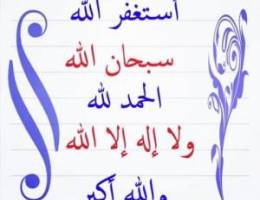 أستغفر الله
سبحان الله
الحمد لله
ولا إله إلا الله
والله أكبر